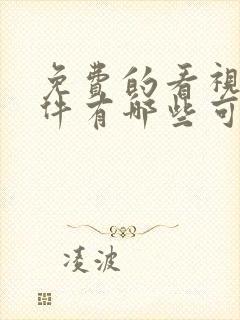 免费的看视
件有哪些可
凌波